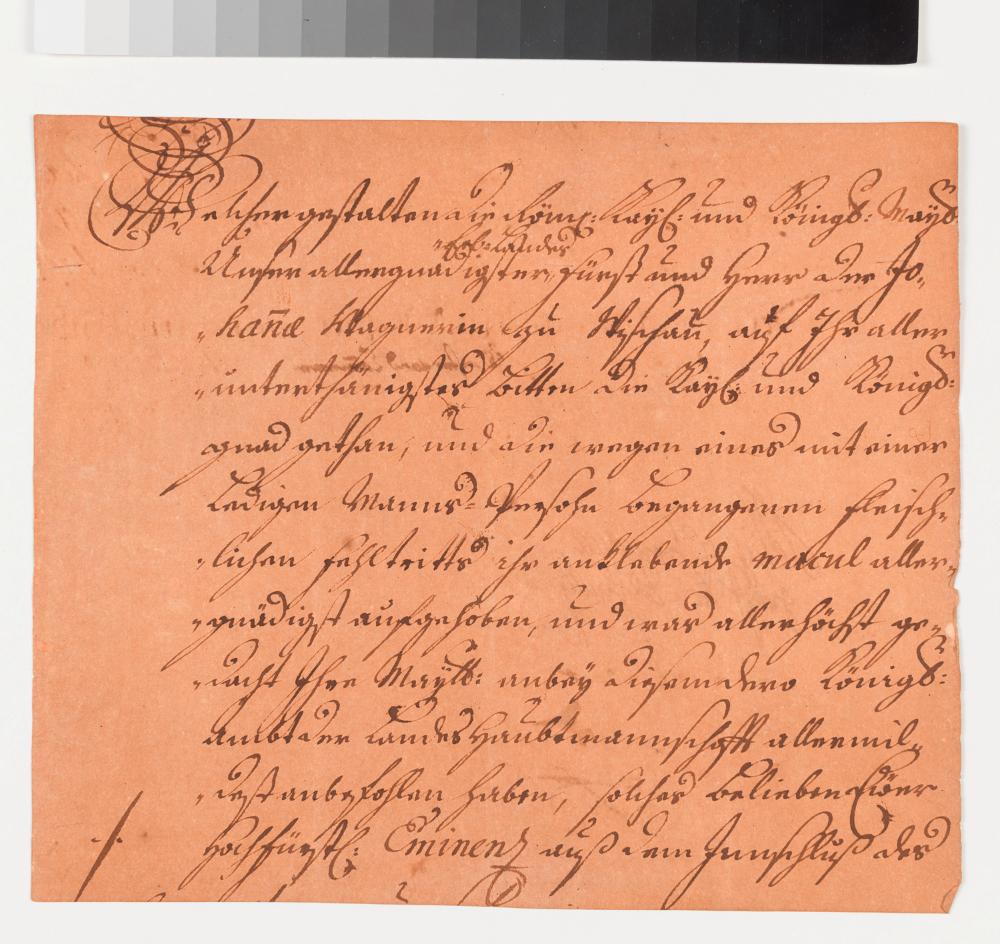 Welcher gestalten die Röm: Kayß: und Königl: Mayt:
Erb-Landes
Unser allergnädigster Fürst und Herr der Jo-
-hanæ Wagnerin zu Wischau, auf Ihr aller
-unterthänigstes Bitten die Kayß: und Königl:
gnad gethan, und die wegen eines mit einer
Ledigen Manns-Persohn begangenen fleisch-
-lichen fehltritts ihr anklebende macul aller-
-gnädigst aufgehoben, und was allerhöchst ge-
-dacht Ihre Maytt: anbey diesem dero Königl:
Ambt der Landes Haubtmannschafft allermil-
-dest anbefohlen haben, solches belieben Euer
Hochfürstl: Eminenz auß dem Innschluß des